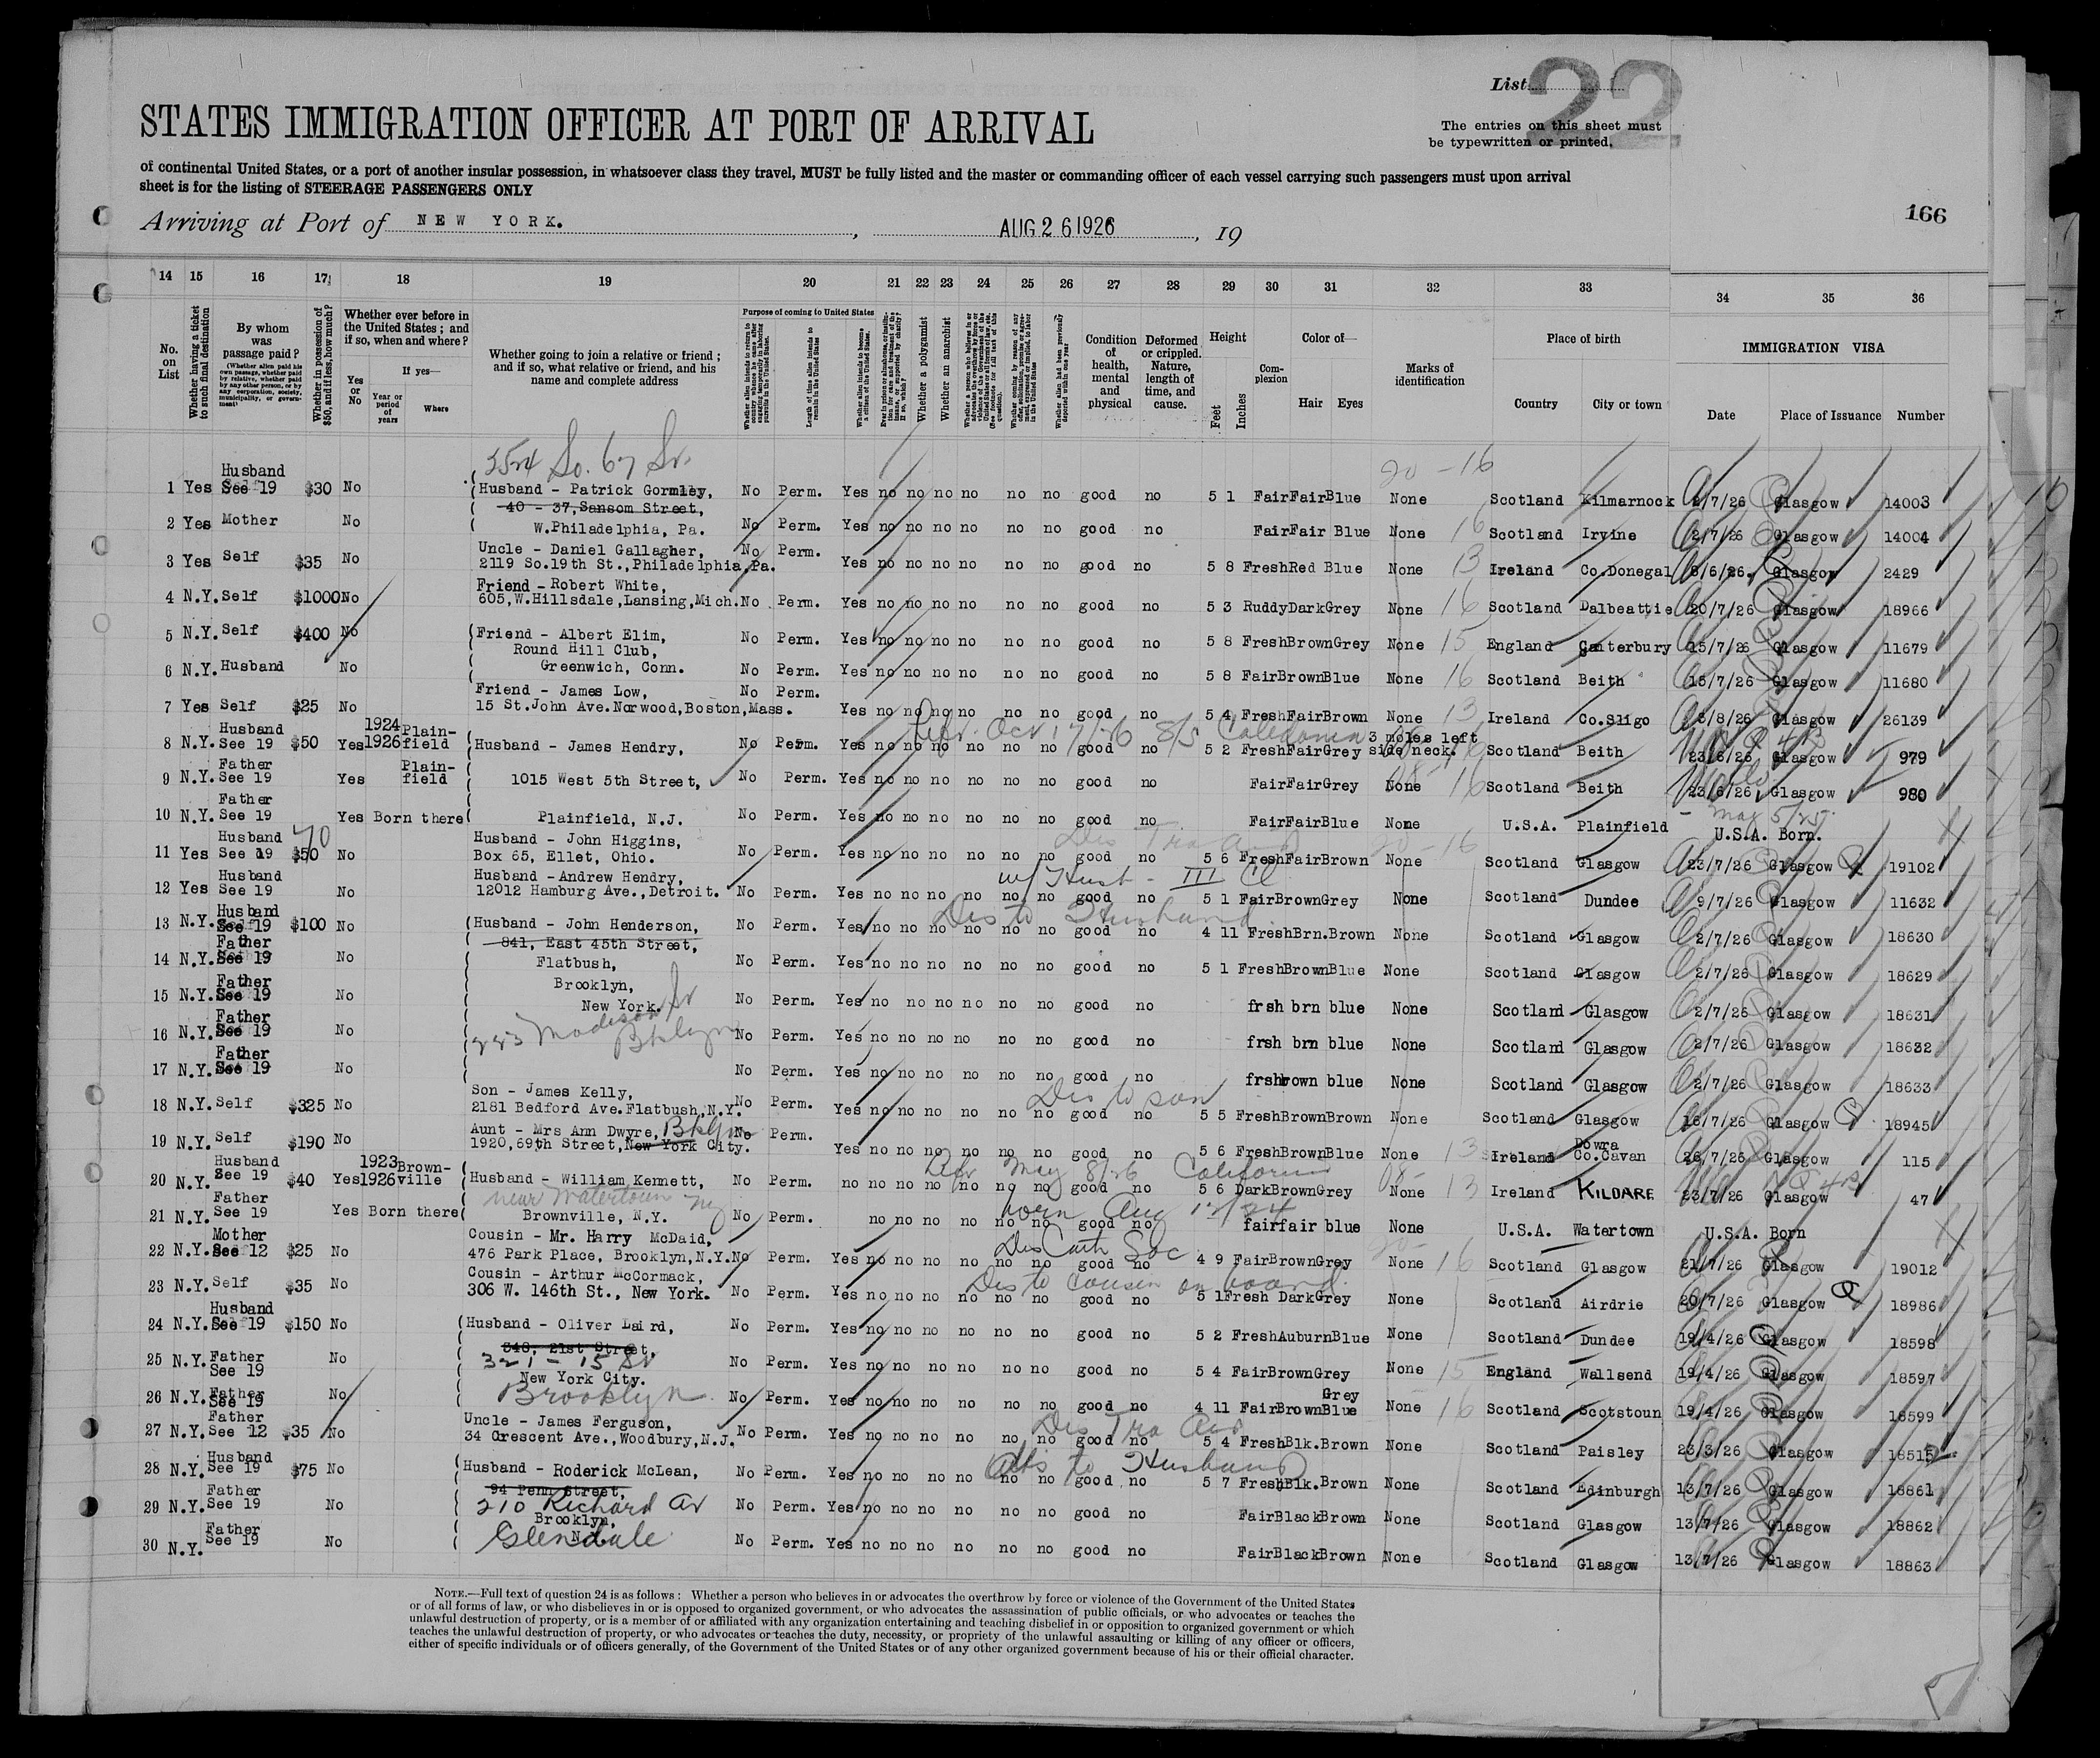 List 22
STATES IMMIGRATION OFFICER AT PORT OF ARRIVAL
The entries on this sheet must
be typewritten or printed.
of continental United States, or a port of another insular possession, in whatsoever class they travel, MUST be fully listed and the master or commanding officer of each vessel carrying such passengers must upon arrival
sheet is for the listing of STEERAGE PASSENGERS ONLY
166
Arriving at Port of NEW YORK. , AUG 26 1926 , 19
14 15 16 17 18 19 20 21 22 23 24 25 26 27 28 29 30 31 32 33 34 35 36
No. on List
Whether having a ticket to such final destination
By whom was passage paid?
(Whether alien paid his own passage, whether paid by relative, whether paid by any other person, or by any corporation, society, municipality, or government)
Whether in possession of $50, and if less, how much?
Whether ever before in the United States; and if so, when and where?
Yes or No
If yes—
Year or period of years
Where
Whether going to join a relative or friend; and if so, what relative or friend, and his name and complete address
Purpose of coming to United States
Length of time alien intends to remain in the United States
Whether a polygamist
Whether an anarchist
Condition of health, mental and physical
Deformed or crippled. Nature, length of time, and cause.
Height
Feet Inches
Complexion
Color of—
Hair Eyes
Marks of identification
Place of birth
Country City or town
IMMIGRATION VISA
Date Place of Issuance Number
3524 So. 67 St. 20-16
1 Yes Husband See 19 $30 No Husband - Patrick Gormley, No Perm. Yes no no no no no no good no 5 1 Fair Fair Blue None Scotland Kilmarnock 2/7/26 Glasgow 14003
40 - 37, Sansom Street,
2 Yes Mother No W.Philadelphia, Pa. No Perm. Yes no no no no no no good no Fair Fair Blue None 16 Scotland Irvine 2/7/26 Glasgow 14004
3 Yes Self $35 No Uncle - Daniel Gallagher, No Perm.
2119 So.19th St., Philadelphia, Pa. Yes no no no no no no good no 5 8 Fresh Red Blue None 13 Ireland Co.Donegal 8/6/26. Glasgow 2429
4 N.Y. Self $1000 No Friend - Robert White,
605,W.Hillsdale,Lansing,Mich. No Perm. Yes no no no no no no good no 5 3 Ruddy Dark Grey None 16 Scotland Dalbeattie 20/7/26 Glasgow 18966
5 N.Y. Self $400 No Friend - Albert Elim, No Perm. Yes no no no no no no good no 5 8 Fresh Brown Grey None 15 England Canterbury 15/7/26 Glasgow 11679
Round Hill Club,
6 N.Y. Husband No Greenwich, Conn. No Perm. Yes no no no no no no good no 5 8 Fair Brown Blue None 16 Scotland Beith 15/7/26 Glasgow 11680
7 Yes Self $25 No Friend - James Low, No Perm.
15 St.John Ave.Norwood,Boston,Mass. Yes no no no no no no good no 5 4 Fresh Fair Brown None 13 Ireland Co.Sligo 3/8/26 Glasgow 26139
8 N.Y. Husband See 19 $50 Yes 1924 1926 Plain-field Husband - James Hendry, No Perm. Yes no no no no no no good no 5 2 Fresh Fair Grey 3 moles left side neck. 16 Scotland Beith 23/6/26 Glasgow 979
9 N.Y. Father See 19 Yes Plain-field 1015 West 5th Street, No Perm. Yes no no no no no no good no Fair Fair Grey None 16 Scotland Beith 23/6/26 Glasgow 980
10 N.Y. Father See 19 Yes Born there Plainfield, N.J. No Perm. Yes no no no no no no good no Fair Fair Blue None U.S.A. Plainfield U.S.A. Born.
11 Yes Husband See 19 $50 70 No Husband - John Higgins,
Box 65, Ellet, Ohio. No Perm. Yes no no no no no no good no 5 6 Fresh Fair Brown None Scotland Glasgow 23/7/26 Glasgow 19102
w/ Husb - III Cl
12 Yes Husband See 19 No Husband -Andrew Hendry,
12012 Hamburg Ave.,Detroit. No Perm. Yes no no no no no no good no 5 1 Fair Brown Grey None Scotland Dundee 9/7/26 Glasgow 11632
Dis to Husband
13 N.Y. Husband See 19 $100 No Husband - John Henderson, No Perm. Yes no no no no no no good no 4 11 Fresh Brn. Brown None Scotland Glasgow 2/7/26 Glasgow 18630
841, East 45th Street,
14 N.Y. Father See 19 No Flatbush, No Perm. Yes no no no no no no good no 5 1 Fresh Brown Blue None Scotland Glasgow 2/7/26 Glasgow 18629
Brooklyn,
15 N.Y. Father See 19 No New York. No Perm. Yes no no no no no no good no frsh brn blue None Scotland Glasgow 2/7/26 Glasgow 18631
223 Madison St Bklyn
16 N.Y. Father See 19 No No Perm. Yes no no no no no no good no frsh brn blue None Scotland Glasgow 2/7/26 Glasgow 18632
17 N.Y. Father See 19 No No Perm. Yes no no no no no no good no frsh brown blue None Scotland Glasgow 2/7/26 Glasgow 18633
Dis to son
18 N.Y. Self $325 No Son - James Kelly,
2181 Bedford Ave.Flatbush,N.Y. No Perm. Yes no no no no no no good no 5 5 Fresh Brown Brown None Scotland Glasgow 16/7/26 Glasgow 18945
19 N.Y. Self $190 No Aunt - Mrs Ann Dwyre, Bklyn No Perm.
1920,69th Street,New York City. Yes no no no no no no good no 5 6 Fresh Brown Blue None 13 Ireland Dowra Co.Cavan 26/7/26 Glasgow 115
20 N.Y. Husband See 19 $40 Yes 1923 1926 Brown-ville Husband - William Kennett, No Perm. no no no no no no no good no 5 6 Dark Brown Grey None 13 Ireland KILDARE 23/7/26 Glasgow 47
near Watertown NY
born Aug 12/24
21 N.Y. Father See 19 Yes Born there Brownville, N.Y. No Perm. no no no no no no good no fair fair blue None U.S.A. Watertown U.S.A. Born
22 N.Y. Mother See 12 $25 No Cousin - Mr. Harry McDaid,
Dis Cath Soc
476 Park Place, Brooklyn,N.Y. No Perm. Yes no no no no no no good no 4 9 Fair Brown Grey None 16 Scotland Glasgow 21/7/26 Glasgow 19012
Dis to Cousin on board
23 N.Y. Self $35 No Cousin - Arthur McCormack,
306 W. 146th St., New York. No Perm. Yes no no no no no no good no 5 1 Fresh Dark Grey None Scotland Airdrie 20/7/26 Glasgow 18986
24 N.Y. Husband See 19 $150 No Husband - Oliver Laird, No Perm. Yes no no no no no no good no 5 2 Fresh Auburn Blue None Scotland Dundee 19/4/26 Glasgow 18598
348, 21st Street,
321 - 15 St
25 N.Y. Father See 19 No New York City. No Perm. Yes no no no no no no good no 5 4 Fair Brown Grey None 15 England Wallsend 19/4/26 Glasgow 18597
Brooklyn
26 N.Y. Father See 19 No No Perm. Yes no no no no no no good no 4 11 Fair Brown Grey Blue None 16 Scotland Scotstoun 19/4/26 Glasgow 18599
27 N.Y. Father See 12 $35 No Uncle - James Ferguson,
34 Crescent Ave.,Woodbury,N.J. No Perm. Yes no no no no no no good no 5 4 Fresh Blk. Brown None Scotland Paisley 23/3/26 Glasgow 18515
to Husband
28 N.Y. Husband See 19 $75 No Husband - Roderick McLean, No Perm. Yes no no no no no no good no 5 7 Fresh Blk. Brown None Scotland Edinburgh 13/7/26 Glasgow 18861
94 Penn Street,
210 Richard Av
29 N.Y. Father See 19 No Brooklyn, No Perm. Yes no no no no no no good no Fair Black Brown None Scotland Glasgow 13/7/26 Glasgow 18862
Glendale
30 N.Y. Father See 19 No No Perm. Yes no no no no no no good no Fair Black Brown None Scotland Glasgow 13/7/26 Glasgow 18863
NOTE.—Full text of question 24 is as follows: Whether a person who believes in or advocates the overthrow by force or violence of the Government of the United States
or of all forms of law, or who disbelieves in or is opposed to organized government, or who advocates the assassination of public officials, or who advocates or teaches the
unlawful destruction of property, or is a member of or affiliated with any organization entertaining and teaching disbelief in or opposition to organized government or which
teaches the unlawful destruction of property, or who advocates or teaches the duty, necessity, or propriety of the unlawful assaulting or killing of any officer or officers,
either of specific individuals or of officers generally, of the Government of the United States or of any other organized government because of his or their official character.